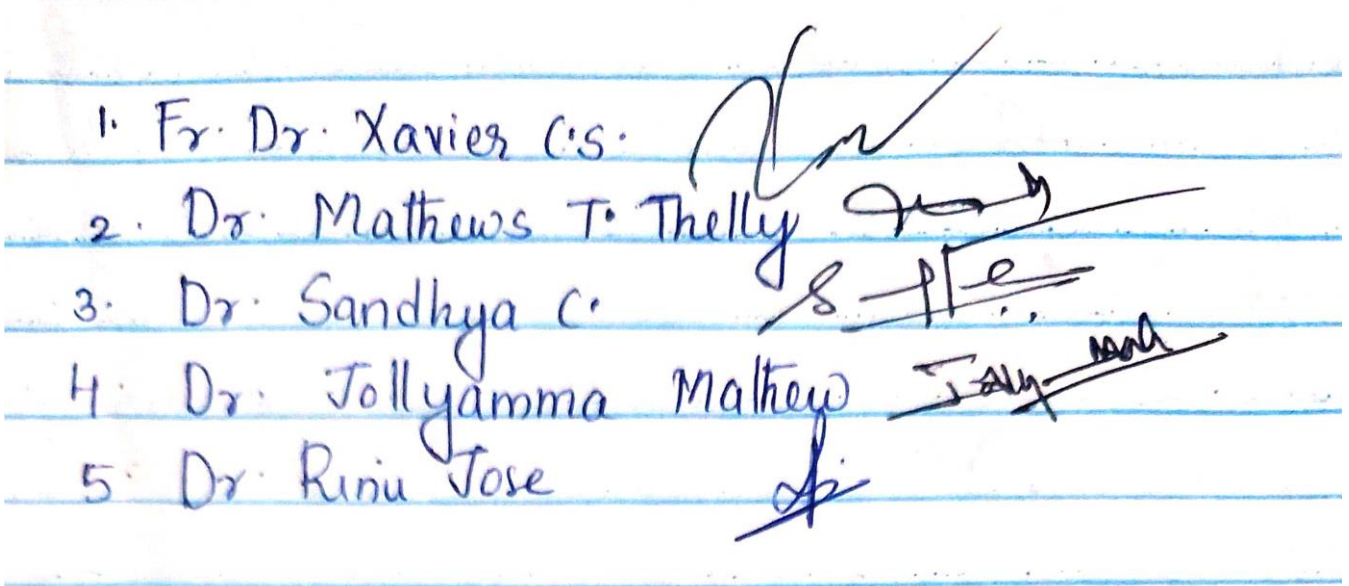 1. Fr. Dr. Xavier C.S.
2. Dr. Mathews T. Thelly
3. Dr. Sandhya C.
4. Dr. Jollyamma Mathew
5. Dr. Rinu Jose